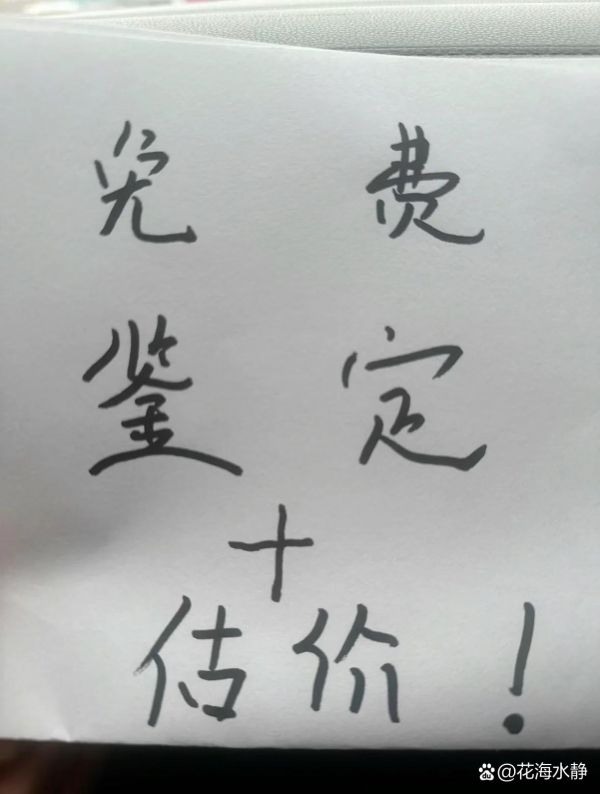 免费
鉴定
+
估价!
@花海水静